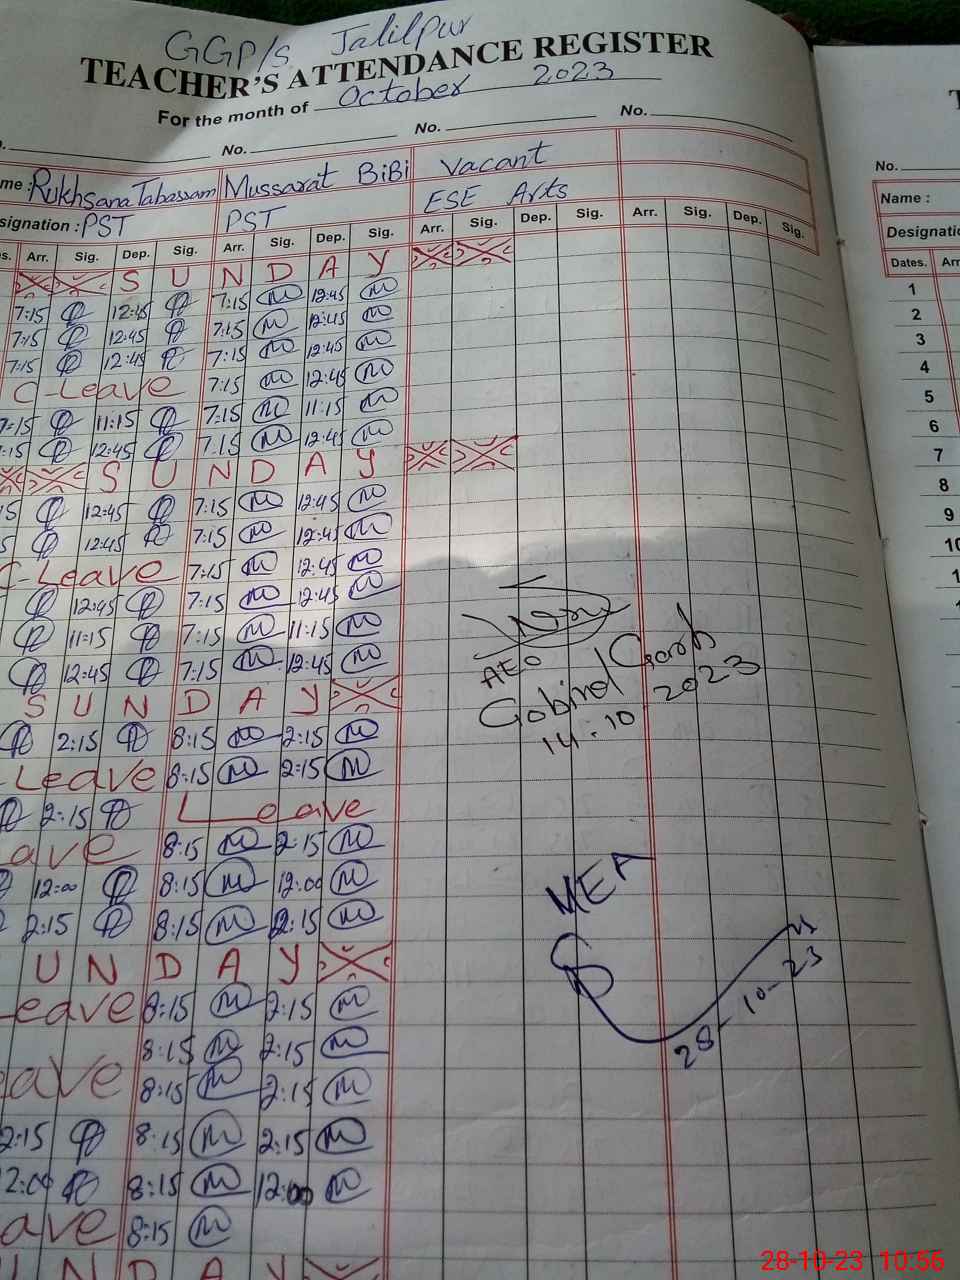 GGP/S Jalilpur
TEACHER'S ATTENDANCE REGISTER
For the month of October 2023
No. No. No.
me : Rukhsana Tabassam Mussarat BiBi Vacant
signation : PST PST ESE Arts
s. Arr. Sig. Dep. Sig. Arr. Sig. Dep. Sig. Arr. Sig. Dep. Sig. Arr. Sig. Dep. Sig.
S U N D A Y
7:15 12:45 7:15 12:45
7:15 12:45 7:15 12:45
7:15 12:45 7:15 12:45
C-Leave 7:15 12:45
7:15 11:15 7:15 11:15
:15 12:45 7:15 12:45
S U N D A Y
5 12:45 7:15 12:45
5 12:45 7:15 12:45
C-Leave 7:15 12:45
12:45 7:15 12:45
11:15 7:15 11:15
12:45 7:15 12:45
S U N D A Y
2:15 8:15 2:15
Leave 8:15 2:15
2:15 Leave
ave 8:15 2:15
12:00 8:15 12:00
2:15 8:15 2:15
U N D A Y
eave 8:15 2:15
8:15 2:15
eave 8:15 2:15
2:15 8:15 2:15
2:00 8:15 12:00
ave 8:15
U N D A Y
AEO
Gobind Garh
14.10 2023
MEA
28-10-23
No.
Name :
Designatio
Dates. Arr
1
2
3
4
5
6
7
8
9
10
1
28-10-23 10:56